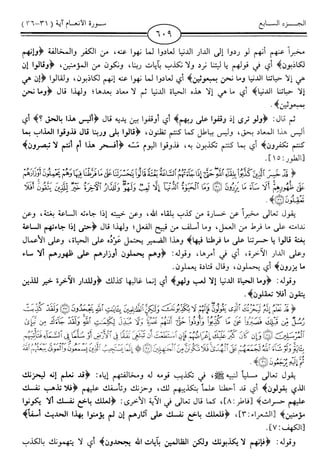 الجزء السابع
٦٠٩
سورة الأنعام آية (٣١-٣٦)
مخبراً عنهم أنهم لو ردوا إلى الدار الدنيا لعادوا لما نهوا عنه، من الكفر والمخالفة ﴿وإنهم
لكاذبون﴾ أي في قولهم يا ليتنا نرد ولا نكذب بآيات ربنا، ونكون من المؤمنين، ﴿وقالوا إن
هي إلا حياتنا الدنيا وما نحن بمبعوثين﴾ أي لعادوا لما نهوا عنه إنهم لكاذبون، ولقالوا ﴿إن هي
إلا حياتنا الدنيا﴾ أي ما هي إلا هذه الحياة الدنيا ثم لا معاد بعدها؛ ولهذا قال ﴿وما نحن
بمبعوثين﴾.
ثم قال: ﴿ولو ترى إذ وقفوا على ربهم﴾ أي أوقفوا بين يديه قال ﴿أليس هذا بالحق؟﴾ أي
أليس هذا المعاد بحق، وليس بباطل كما كنتم تظنون، ﴿قالوا بلى وربنا قال فذوقوا العذاب بما
كنتم تكفرون﴾ أي بما كنتم تكذبون به، فذوقوا اليوم مَسّه ﴿أفسحر هذا أم أنتم لا تبصرون﴾
[الطور: ١٥].
﴿قَدْ خَسِرَ الَّذِينَ كَذَّبُوا بِلِقَاءِ اللَّهِ حَتَّى إِذَا جَاءَتْهُمُ السَّاعَةُ بَغْتَةً قَالُوا يَا حَسْرَتَنَا عَلَى مَا فَرَّطْنَا فِيهَا وَهُمْ يَحْمِلُونَ أَوْزَارَهُمْ
عَلَى ظُهُورِهِمْ أَلَا سَاءَ مَا يَزِرُونَ ۝ وَمَا الْحَيَاةُ الدُّنْيَا إِلَّا لَعِبٌ وَلَهْوٌ وَلَلدَّارُ الْآخِرَةُ خَيْرٌ لِلَّذِينَ يَتَّقُونَ أَفَلَا
تَعْقِلُونَ ۝﴾.
يقول تعالى مخبراً عن خسارة من كذب بلقاء الله، وعن خيبته إذا جاءته الساعة بغتة، وعن
ندامته على ما فرط من العمل، وما أسلف من قبيح الفعل؛ ولهذا قال ﴿حتى إذا جاءتهم الساعة
بغتة قالوا يا حسرتنا على ما فرطنا فيها﴾ وهذا الضمير يحتمل عَوْدُه على الحياة، وعلى الأعمال
وعلى الدار الآخرة، أي في أمرها، وقوله: ﴿وهم يحملون أوزارهم على ظهورهم ألا ساء
ما يزرون﴾ أي يحملون، وقال قتادة يعملون.
وقوله: ﴿وما الحياة الدنيا إلا لعب ولهو﴾ أي إنما غالبها كذلك ﴿وللدار الآخرة خير للذين
يتقون أفلا تعقلون﴾.
﴿قَدْ نَعْلَمُ إِنَّهُ لَيَحْزُنُكَ الَّذِي يَقُولُونَ فَإِنَّهُمْ لَا يُكَذِّبُونَكَ وَلَكِنَّ الظَّالِمِينَ بِآيَاتِ اللَّهِ يَجْحَدُونَ ۝ وَلَقَدْ كُذِّبَتْ
رُسُلٌ مِنْ قَبْلِكَ فَصَبَرُوا عَلَى مَا كُذِّبُوا وَأُوذُوا حَتَّى أَتَاهُمْ نَصْرُنَا وَلَا مُبَدِّلَ لِكَلِمَاتِ اللَّهِ وَلَقَدْ جَاءَكَ مِنْ نَبَإِ
الْمُرْسَلِينَ ۝ وَإِنْ كَانَ كَبُرَ عَلَيْكَ إِعْرَاضُهُمْ فَإِنِ اسْتَطَعْتَ أَنْ تَبْتَغِيَ نَفَقًا فِي الْأَرْضِ أَوْ سُلَّمًا فِي السَّمَاءِ فَتَأْتِيَهُمْ
بِآيَةٍ وَلَوْ شَاءَ اللَّهُ لَجَمَعَهُمْ عَلَى الْهُدَى فَلَا تَكُونَنَّ مِنَ الْجَاهِلِينَ ۝ إِنَّمَا يَسْتَجِيبُ الَّذِينَ يَسْمَعُونَ وَالْمَوْتَى يَبْعَثُهُمُ اللَّهُ ثُمَّ
إِلَيْهِ يُرْجَعُونَ ۝﴾.
يقول تعالى مسلياً لنبيه ﷺ، في تكذيب قومه له ومخالفتهم إياه: ﴿قد نعلم إنه ليحزنك
الذي يقولون﴾ أي قد أحطنا علماً بتكذيبهم لك، وحزنك وتأسفك عليهم ﴿فلا تذهب نفسك
عليهم حسرات﴾ [فاطر: ٨]، كما قال تعالى في الآية الأخرى: ﴿لعلك باخع نفسك ألا يكونوا
مؤمنين﴾ [الشعراء: ٣]، ﴿فلعلك باخع نفسك على آثارهم إن لم يؤمنوا بهذا الحديث أسفاً﴾
[الكهف: ٧].
وقوله: ﴿فإنهم لا يكذبونك ولكن الظالمين بآيات الله يجحدون﴾ أي لا يتهمونك بالكذب